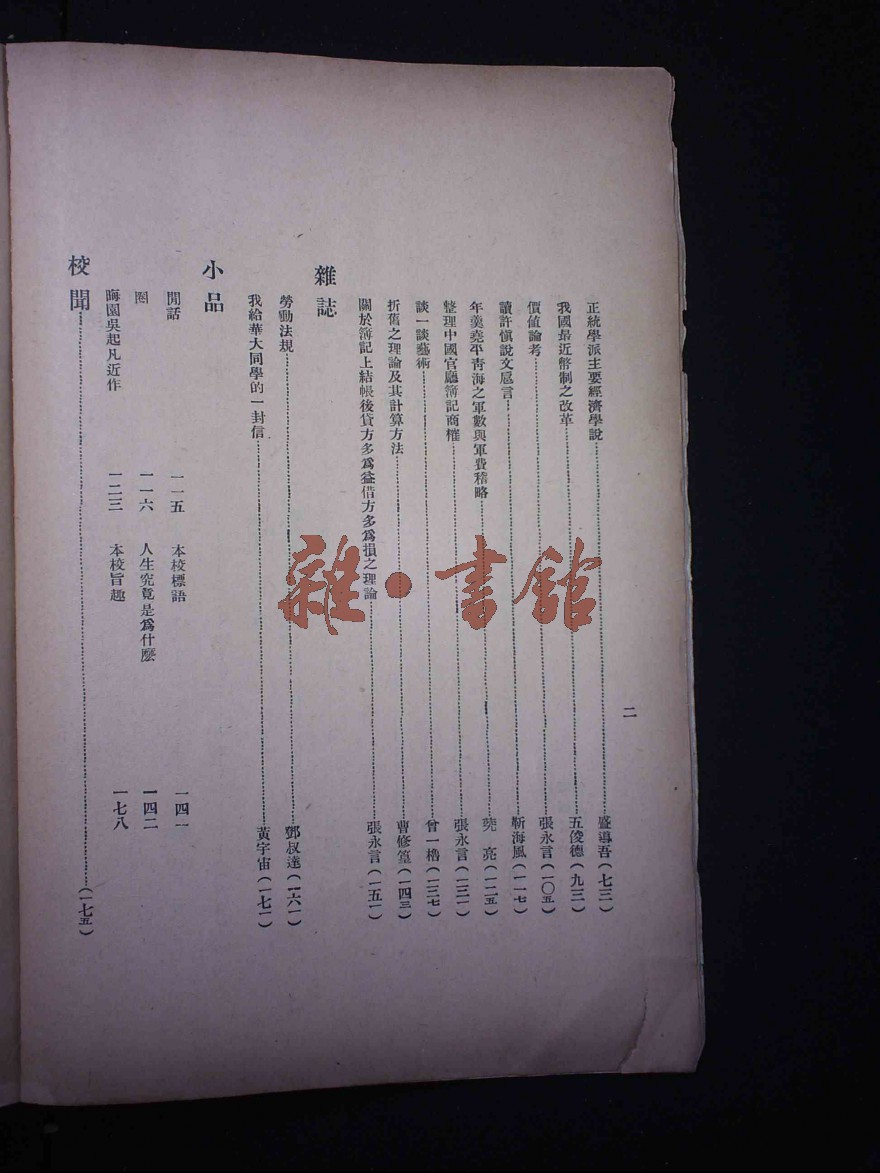 二
正統學派主要經濟學說……盛導吾(七三)
我國最近幣制之改革……五俊德(九三)
價值論考……張永言(一〇五)
讀許愼說文巵言……靳海風(一一七)
年羹堯平青海之軍數與軍費稽略……堯 亮(一二五)
整理中國官廳簿記商榷……張永言(一三一)
談一談藝術……曾一櫓(一三七)
折舊之理論及其計算方法……曹修篁(一四三)
關於簿記上結帳後貸方多爲益借方多爲損之理論……張永言(一五一)
雜誌
勞動法規……鄧叔達(一六一)
我給華大同學的一封信……黃宇宙(一七一)
小品
閒話 一一五 本校標語 一四一
圈 一一六 人生究竟是爲什麽 一四二
晦園吳起凡近作 一二三 本校旨趣 一七八
校聞……(一七五)
雜·書館